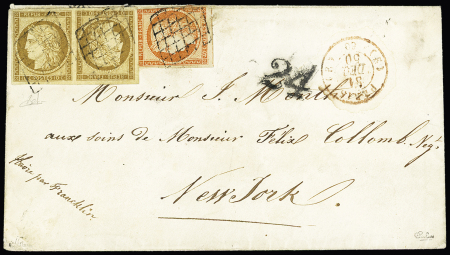 24
Monsieur J.
aux soins de Monsieur Felix Collomb Negt.
New York
par Francklin